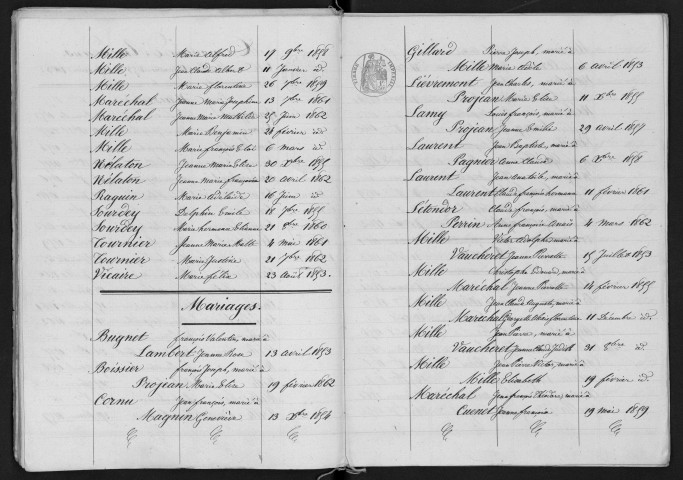 Mille Marie Alfred 17 9bre 1858
Mille Jean Claude Albert 11 Janvier id.
Mille Marie florentine 26 7bre 1859
Maréchal Jeanne Marie Joséphine 13 7bre 1861
Maréchal Jeanne Marie Mathilde 25 Juin 1862
Mille Marie Benjamin 24 février id.
Mille Marie françois Eloi 6 mars id.
Nélaton Jeanne Marie Elise 30 Xbre 1855
Nélaton Jeanne Marie françoise 20 avril 1862
Raguin Marie Adelaïde 16 Juin id.
Sourdey Delphin Emile 18 7bre 1855
Sourdey Marie hermance Etienne 21 8bre 1860
Tournier Jeanne Marie 4 mai 1861
Tournier Marie Justine 21 7bre 1862
Vicaire Marie félix 23 Août 1853.
Mariages.
Bugnet françois Valentin, marié à
Lambert Jeanne 13 avril 1853
Boissier françois Joseph, marié à
Projean Marie Elise 19 février 1862
Cornu Jean françois, marié à
Magnon Geneviève 13 Xbre 1854
Gillard Pierre Joseph, marié à
Mille Marie Adèle 6 avril 1853
Lièvremont Jean Charles, marié à
Projean Marie Elise 11 Xbre 1855
Lamy Louis françois, marié à
Projean Jeanne Emilie 29 avril 1857
Laurent Jean Baptiste, marié à
Pagnier Anne Claude 6 Xbre 1858
Laurent marié à
Laurent Claude françoise hermance 11 février 1861
Létondor Claude françois, marié à
Perrin Anne françoise Anaïs 4 mars 1862
Mille Victor Adolphe, marié à
Vaucheret Jeanne Pierrette 15 Juillet 1853
Mille Christophe Edmond, marié à
Maréchal Jeanne Pierrette 14 février 1855
Mille Jean Claude Auguste, marié à
Maréchal 11 Décembre id.
Mille Jean Pierre, marié à
Vaucheret Jeanne Claude Judith 31 8bre id.
Mille Jean Pierre Victor, marié à
Mille Elisabeth 19 février id.
Maréchal Jean françois marié à
Cuenot Jeanne françoise 19 mai 1859